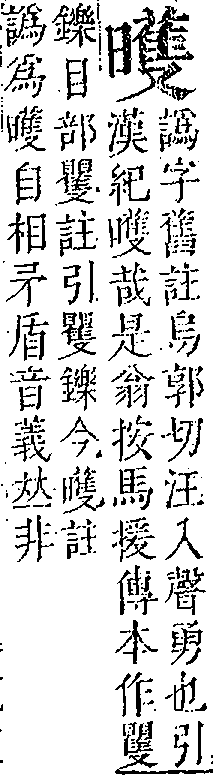 譌字舊註烏郭切汪入聲勇也引
漢紀哉是翁按馬援傳本作矍
鑠目部矍註引矍鑠今註
譌爲自相矛盾音義𠀤非